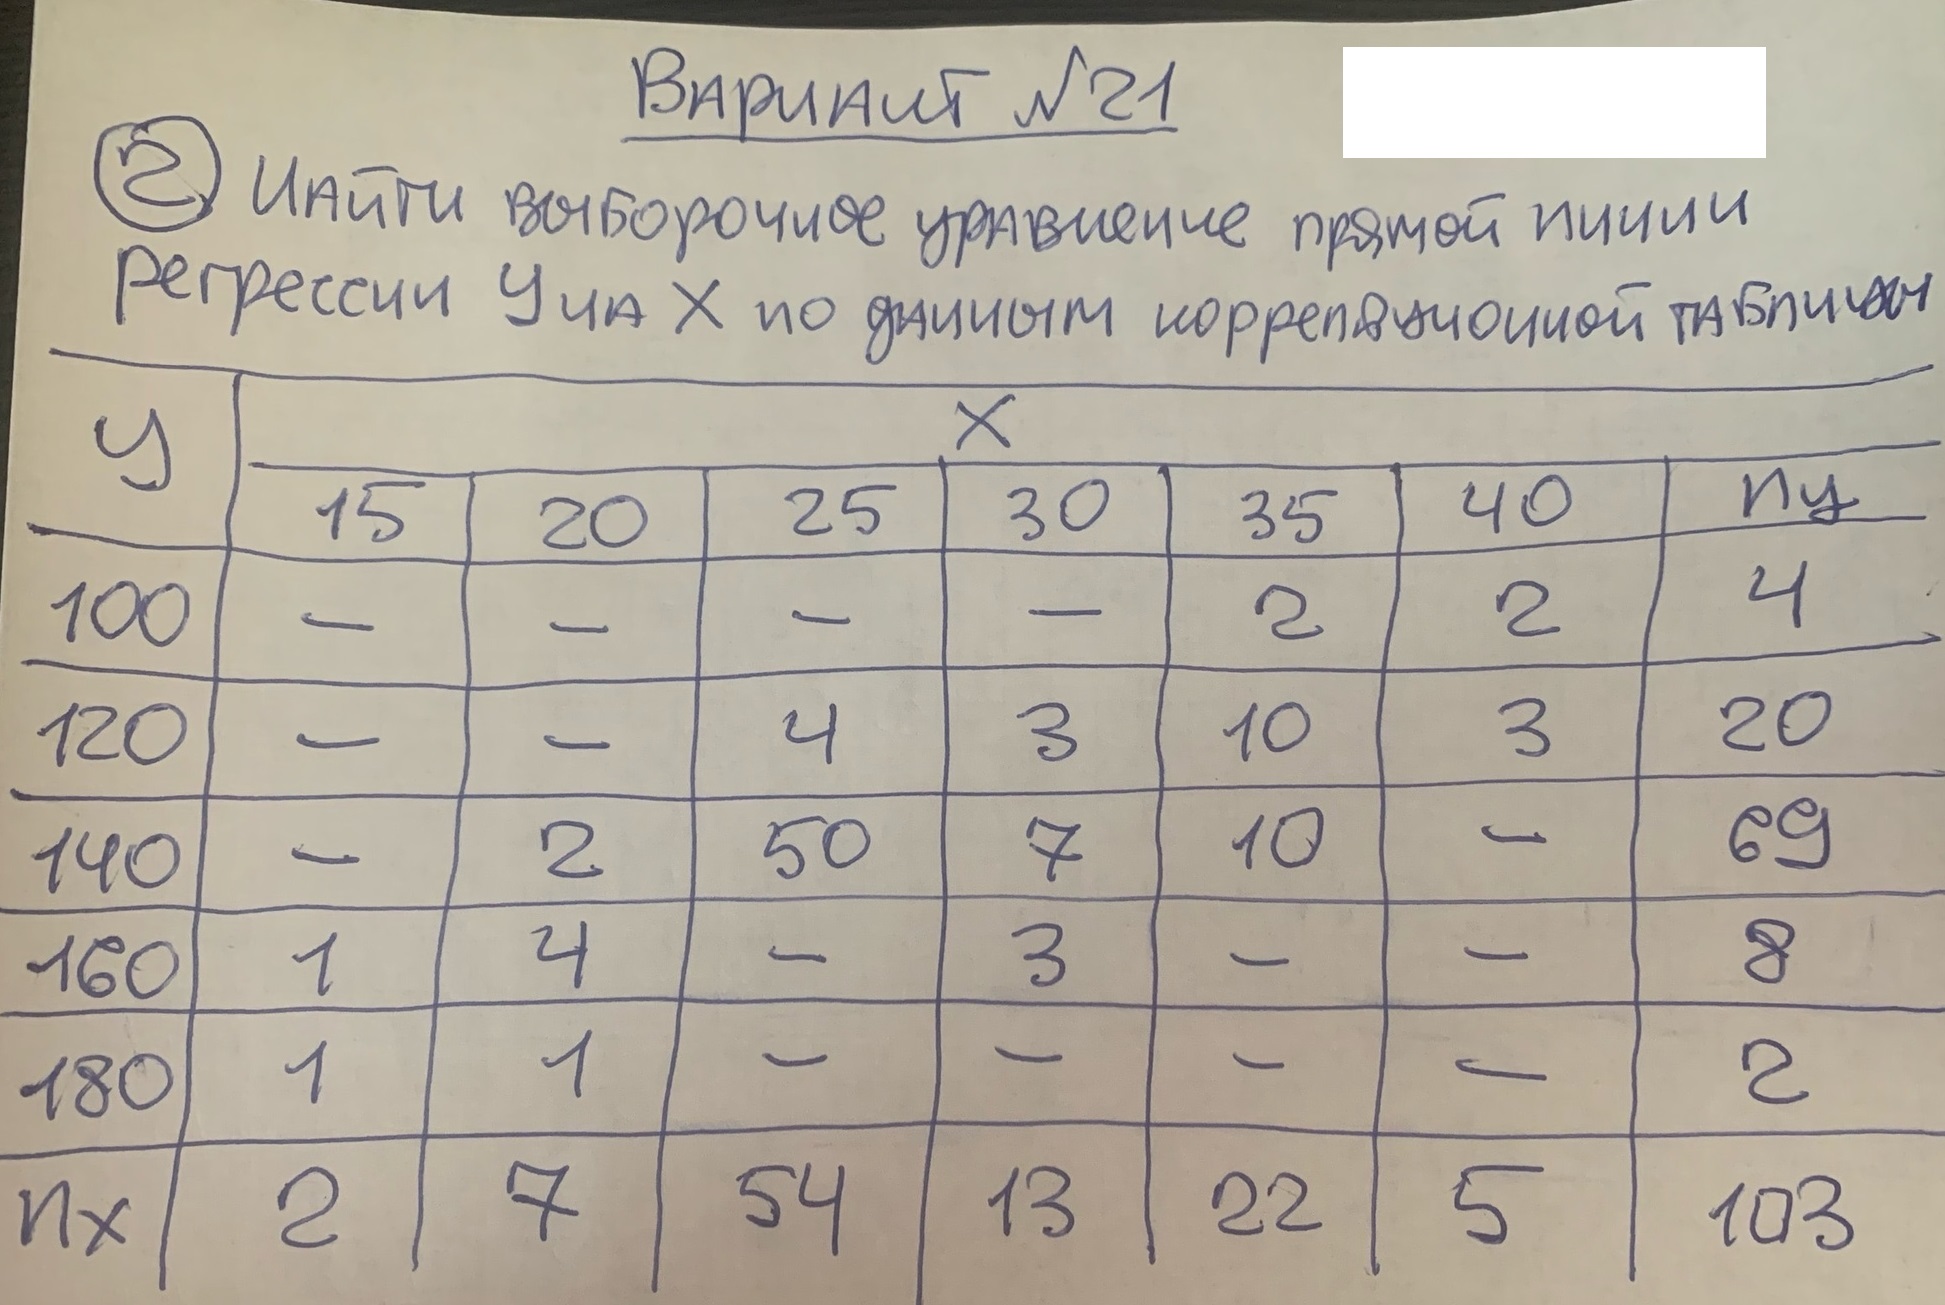 Вариант №21
2 Найти выборочное уравнение прямой линии
регрессии Y на X по данным корреляционной таблицы
У X
15 20 25 30 35 40 ny
100 – – – – 2 2 4
120 – – 4 3 10 3 20
140 – 2 50 7 10 – 69
160 1 4 – 3 – – 8
180 1 1 – – – – 2
nx 2 7 54 13 22 5 103